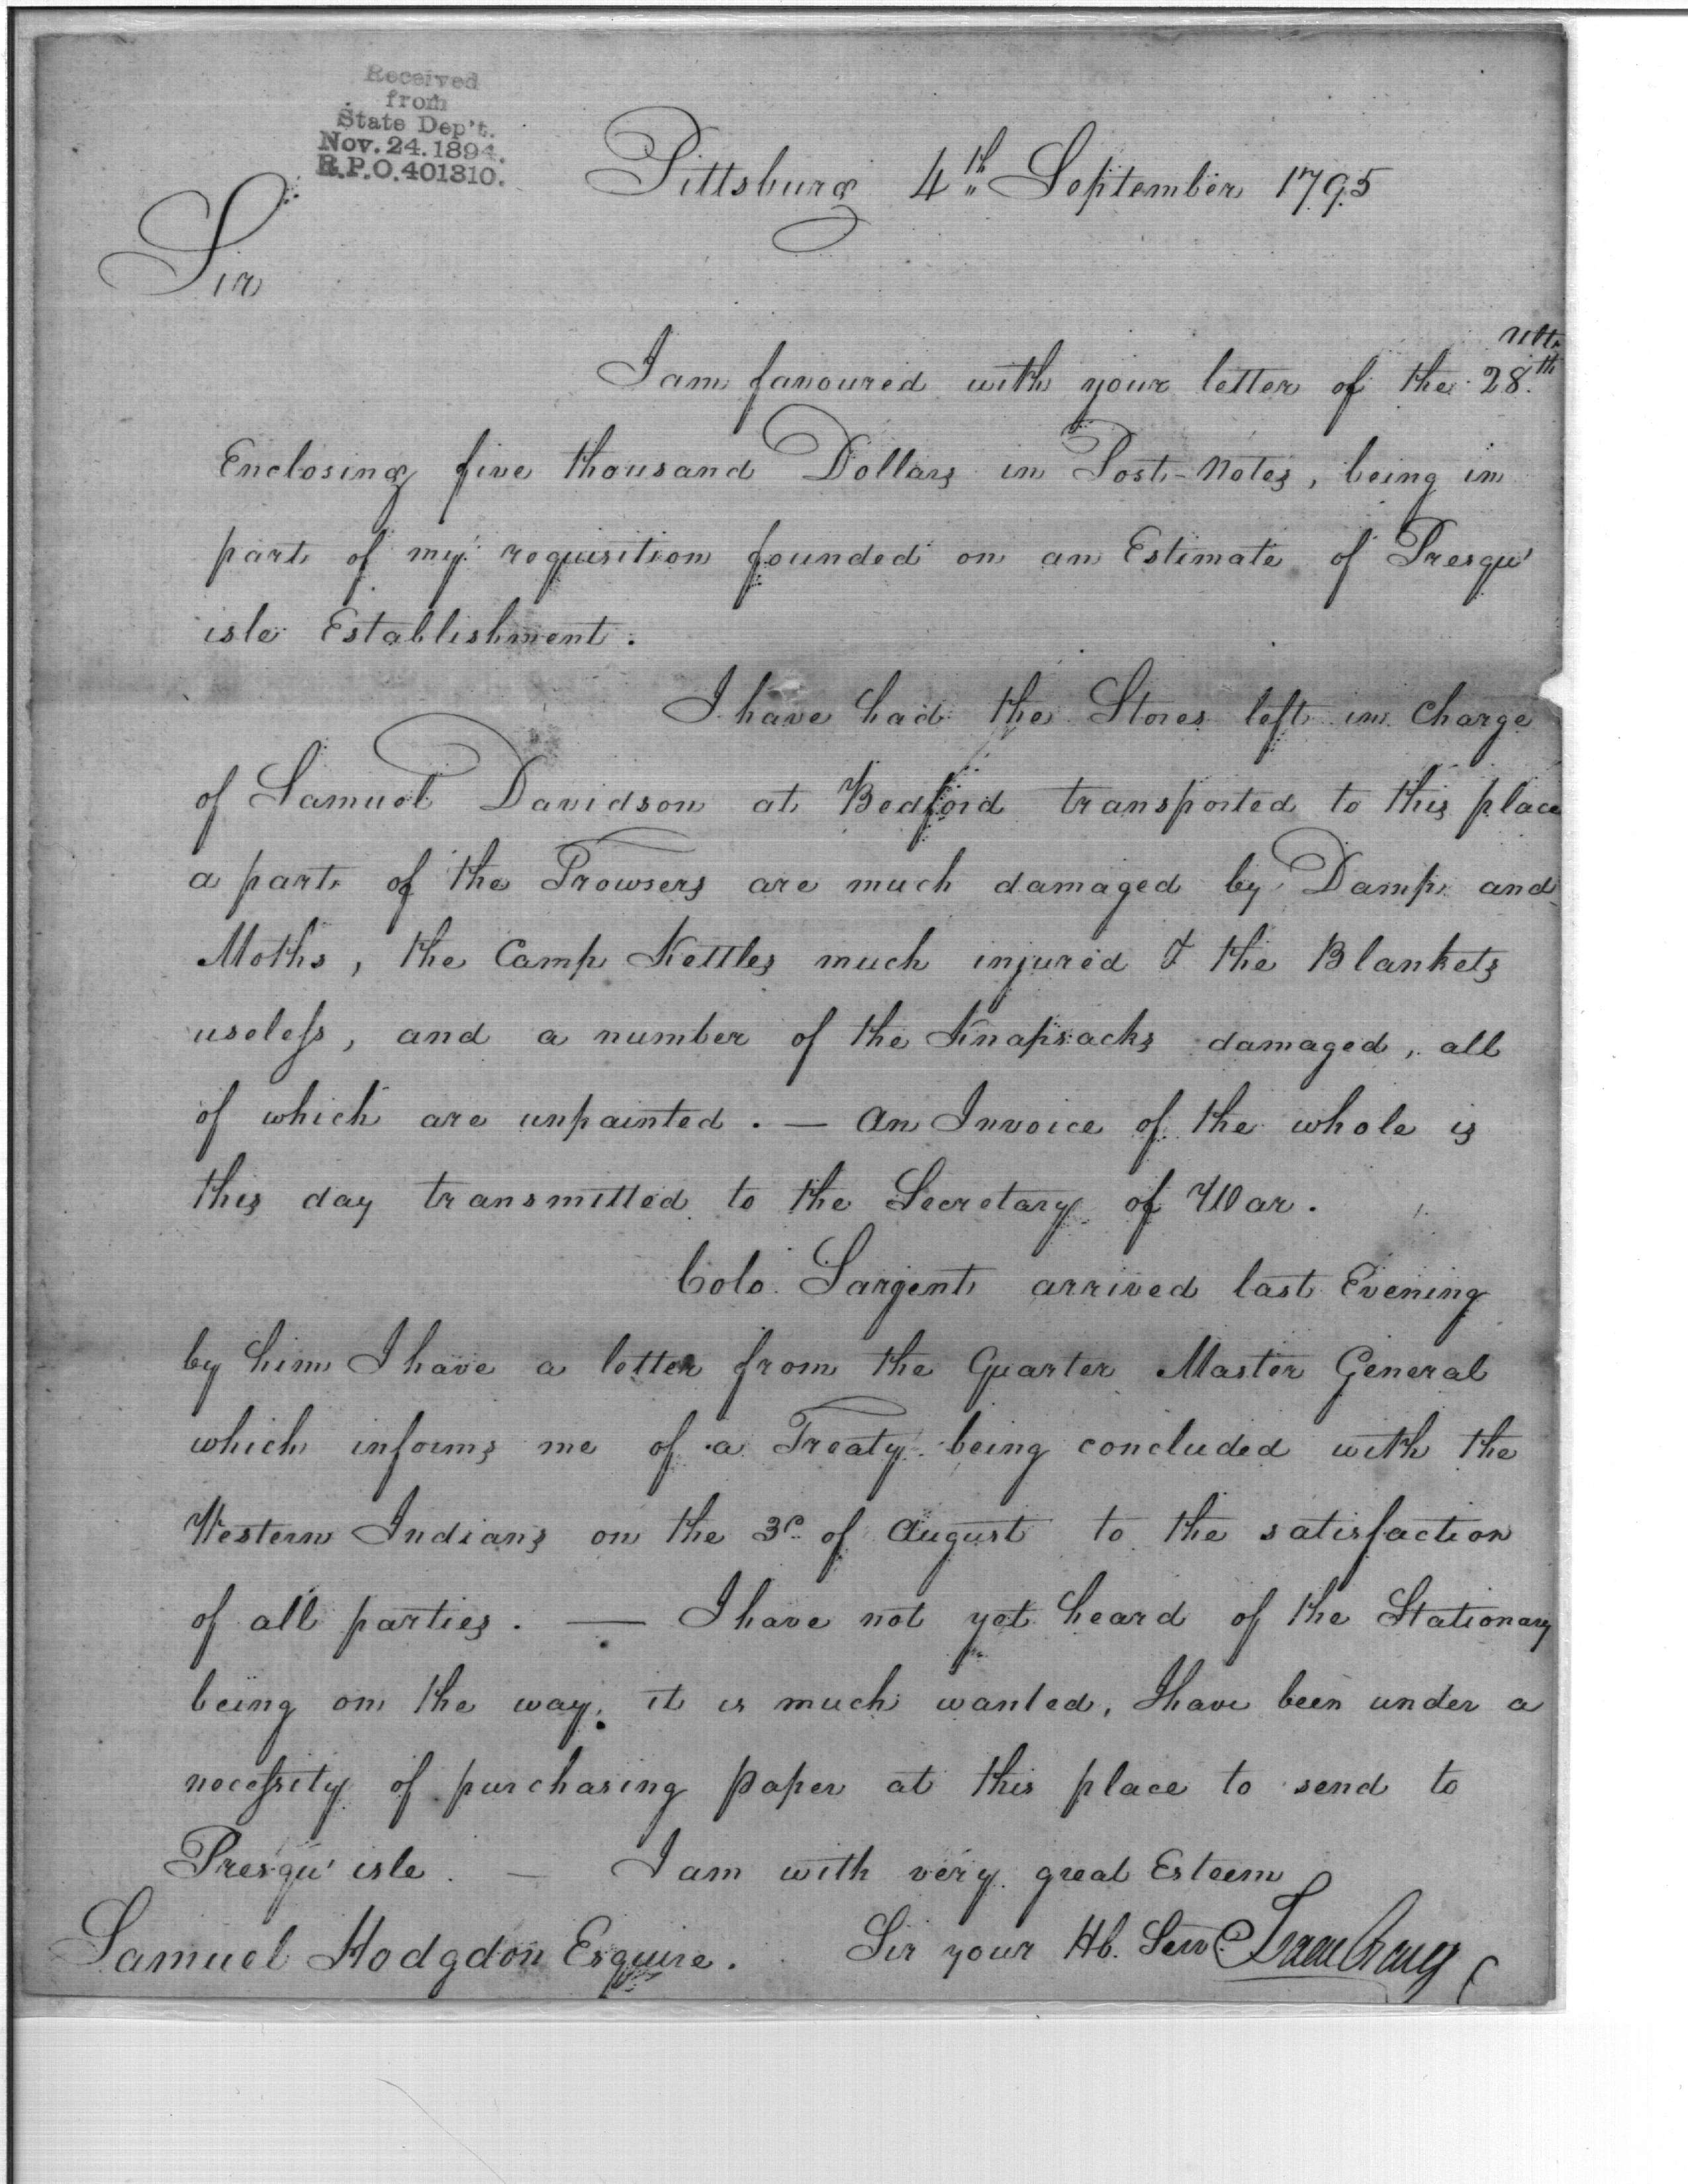 Received
from
State Dep't.
Nov. 24. 1894.
R.P.O. 401310.
Pittsburg 4th September 1795
Sir
ulto
I am favoured with your letter of the 28th
Enclosing five thousand Dollars in Post-Notes, being in
part of my requisition founded on an Estimate of Presqu'
isle Establishment.
I have had the Stores left in Charge
of Samuel Davidson at Bedford transported to this place
a part of the Trowsers are much damaged by Damp and
Moths, the Camp Kettles much injured & the Blankets
useless, and a number of the Knapsacks damaged, all
of which are unpainted. — An Invoice of the whole is
this day transmitted to the Secretary of War.
Colo. Sargent arrived last Evening
by him I have a letter from the Quarter Master General
which informs me of a Treaty being concluded with the
Western Indians on the 3d of August to the satisfaction
of all parties. — I have not yet heard of the Stationary
being on the way, it is much wanted, I have been under a
necessity of purchasing paper at this place to send to
Presqu' isle. — I am with very great Esteem
Samuel Hodgdon Esquire. Sir your Hb. Serv. Isaac Craig